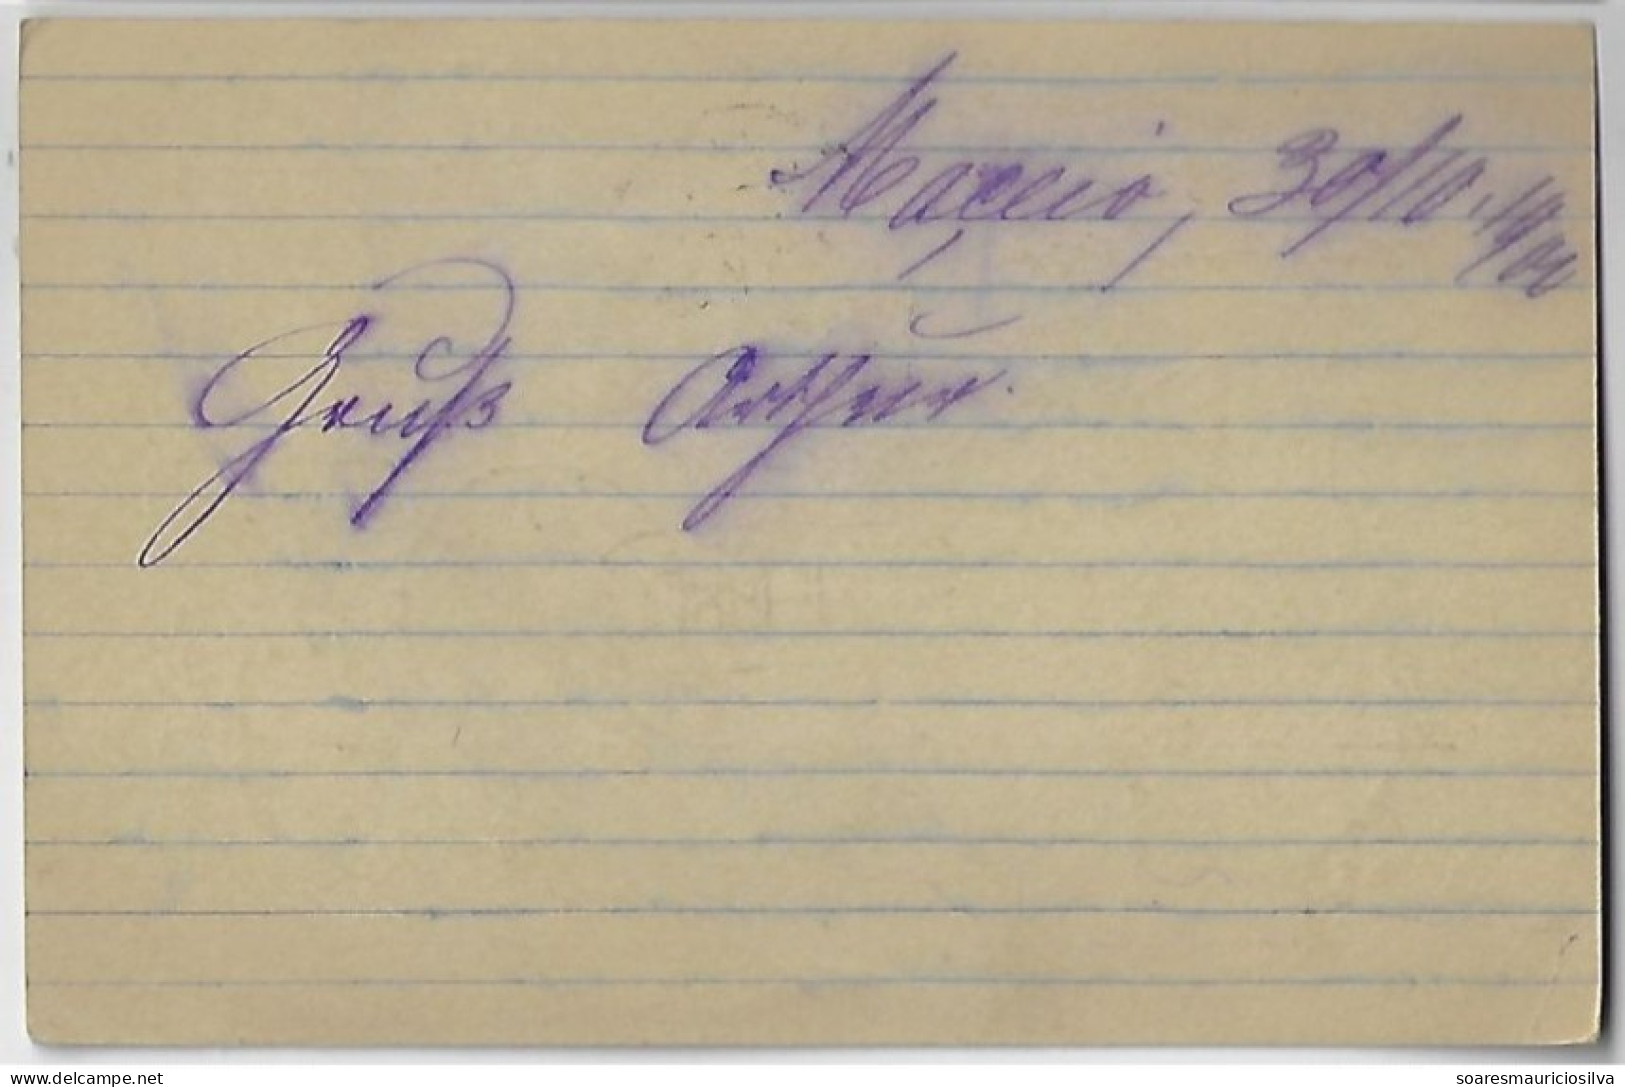 Maceió, 30/10. 1904
Gruß Arthur.
delcampe.net
soaresmauriciosilva